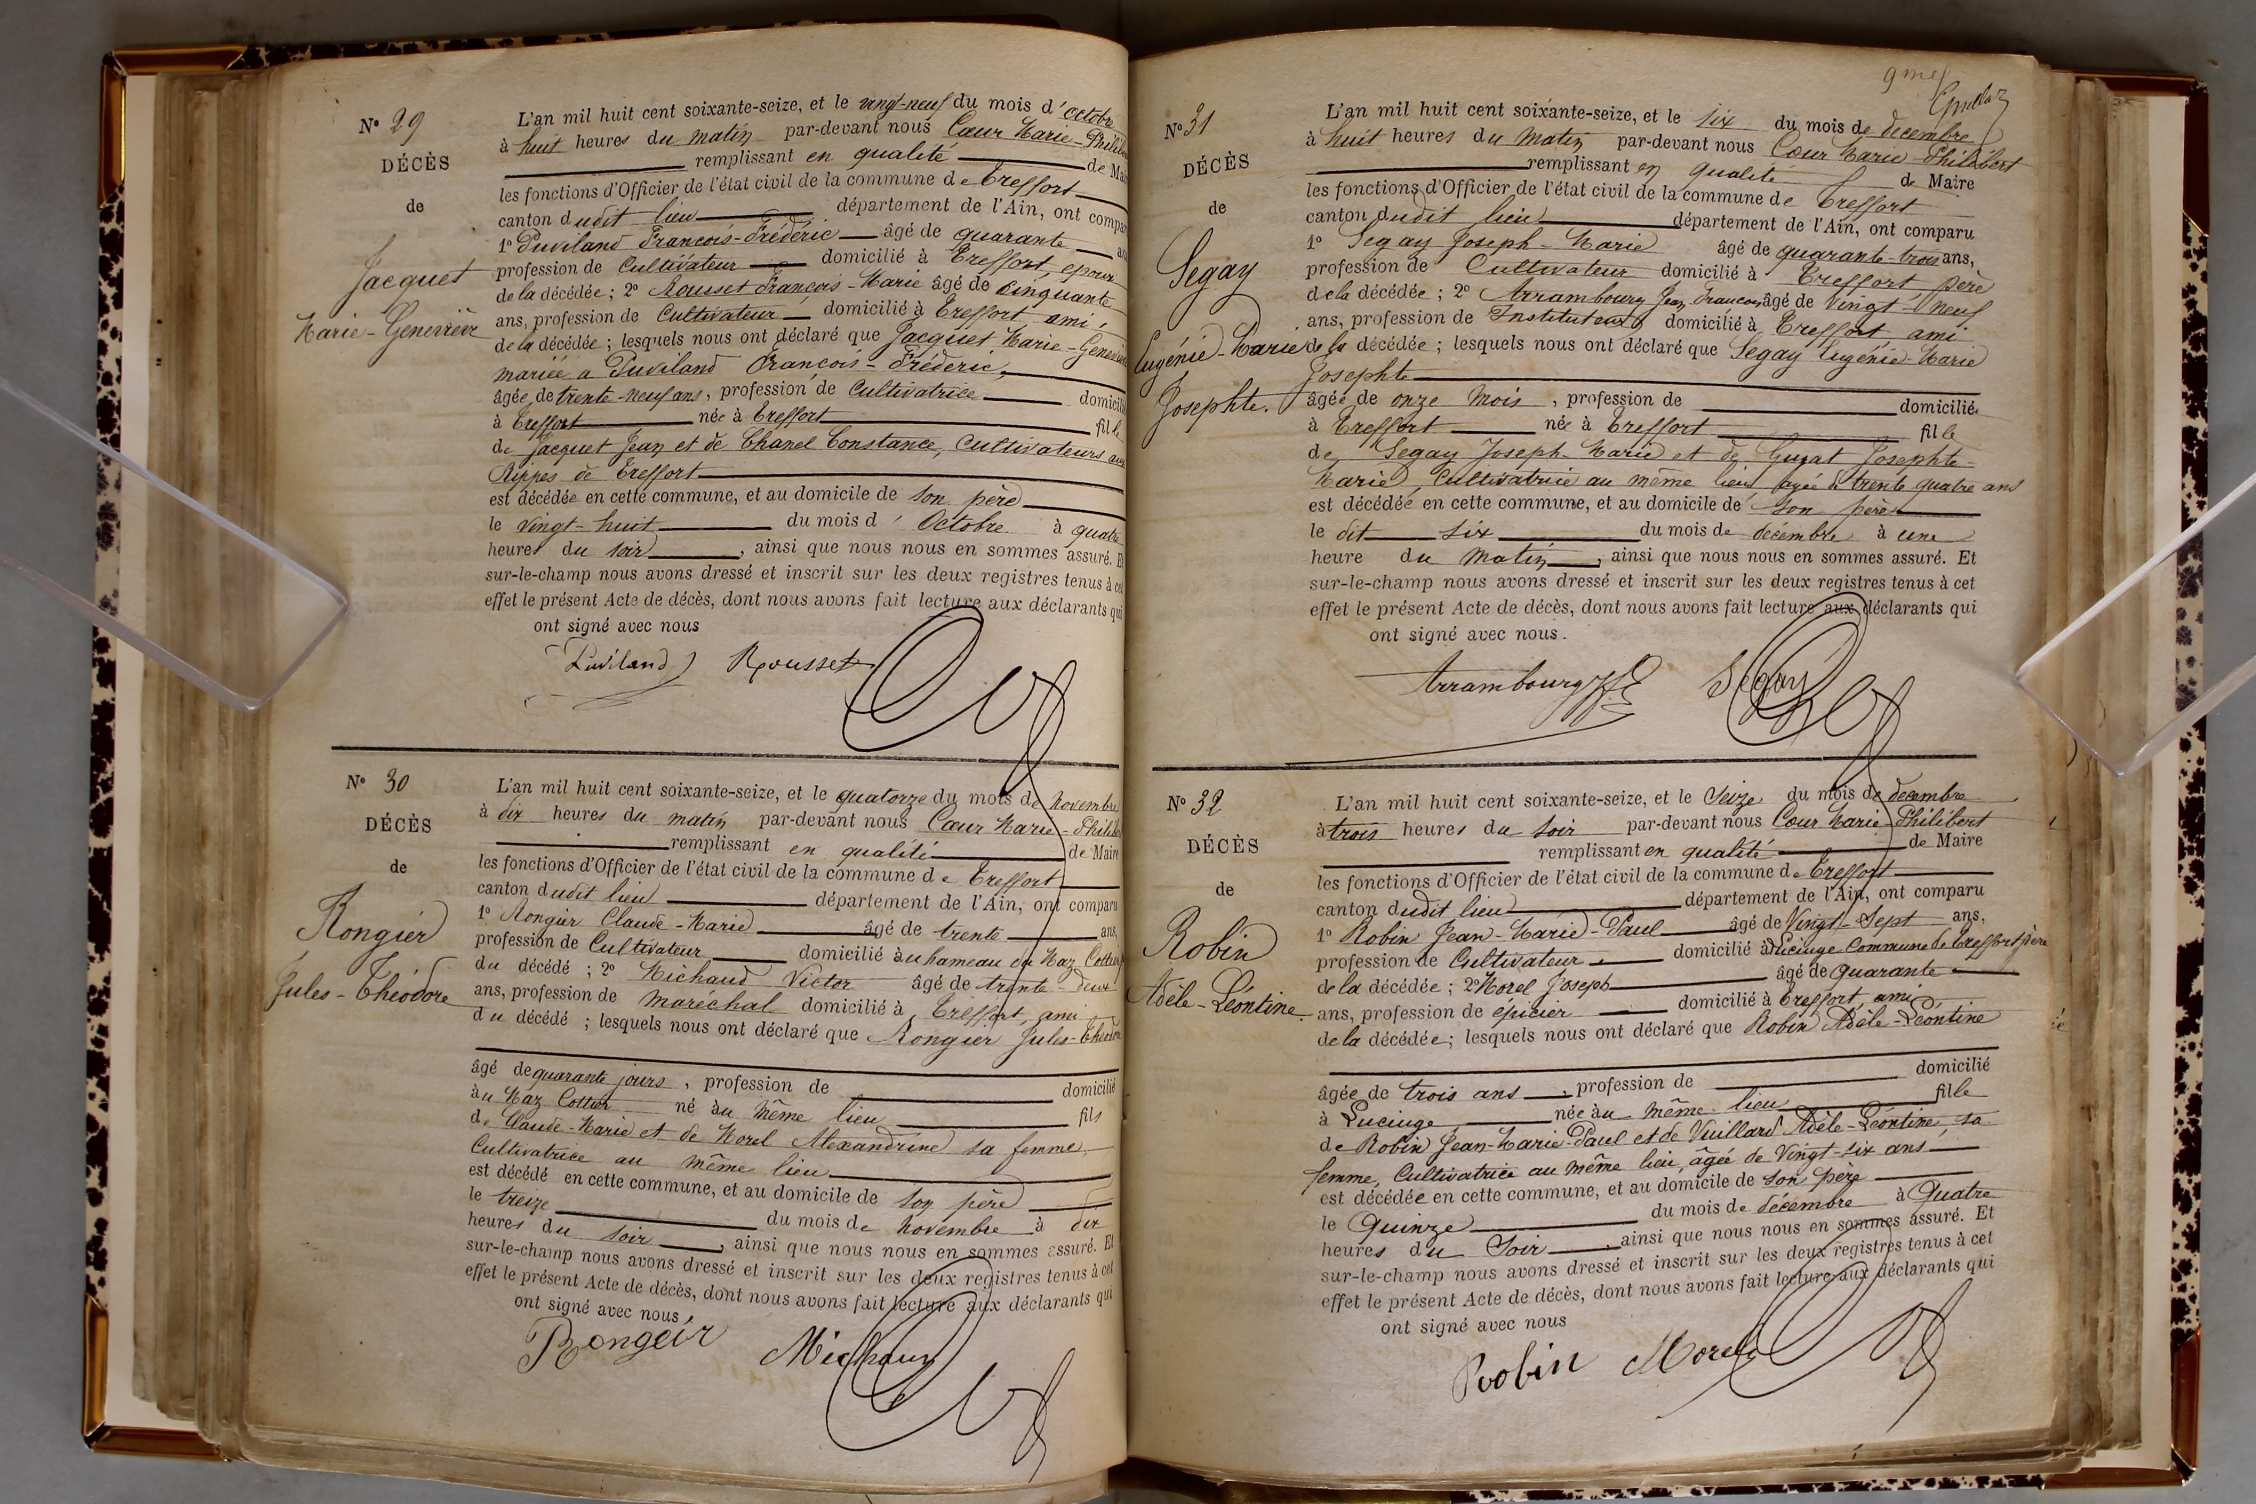 N° 29
DÉCÈS
de
Jacquet
Marie-Geneviève
L'an mil huit cent soixante-seize, et le vingt-neuf du mois d'octobre
à huit heures du matin par-devant nous Cœur Marie-Philibert
remplissant en qualité de Maire
les fonctions d'Officier de l'état civil de la commune de Treffort
canton dudit lieu département de l'Ain, ont comparu
1° Puviland François-Frédéric âgé de quarante ans
profession de Cultivateur domicilié à Treffort, époux
de la décédée ; 2° Rousset François-Marie âgé de cinquante
ans, profession de Cultivateur domicilié à Treffort ami
de la décédée ; lesquels nous ont déclaré que Jacquet Marie-Geneviève
mariée a Puviland François-Fréderic,
âgée de trente-neuf ans, profession de Cultivatrice domicilié
à Treffort née à Treffort fille
de Jacquet Jean et de Chanel Constance, Cultivateurs aux
Rippes de Treffort
est décédée en cette commune, et au domicile de son père
le vingt-huit du mois d'Octobre à quatre
heures du soir, ainsi que nous nous en sommes assuré. Et
sur-le-champ nous avons dressé et inscrit sur les deux registres tenus à cet
effet le présent Acte de décès, dont nous avons fait lecture aux déclarants qui
ont signé avec nous
Puviland Rousset
N° 30
DÉCÈS
de
Rongier
Jules-Théodore
L'an mil huit cent soixante-seize, et le quatorze du mois de Novembre
à dix heures du matin par-devant nous Cœur Marie-Philibert
remplissant en qualité de Maire
les fonctions d'Officier de l'état civil de la commune de Treffort
canton dudit lieu département de l'Ain, ont comparu
1° Rongier Claude-Marie âgé de trente ans,
profession de Cultivateur domicilié au hameau du Maz Cottier
du décédé ; 2° Michaud Victor âgé de trente-deux
ans, profession de maréchal domicilié à Treffort, ami
du décédé ; lesquels nous ont déclaré que Rongier Jules-Théodore
âgé de quarante jours, profession de domicilié
au Maz Cottier né au même lieu fils
de Claude-Marie et de Morel Alexandrine sa femme
Cultivatrice au même lieu
est décédé en cette commune, et au domicile de son père
le treize du mois de novembre à dix
heures du soir, ainsi que nous nous en sommes assuré. Et
sur-le-champ nous avons dressé et inscrit sur les deux registres tenus à cet
effet le présent Acte de décès, dont nous avons fait lecture aux déclarants qui
ont signé avec nous
Rongeir Michaud
N° 31
DÉCÈS
de
Segay
Eugénie-Marie
Josephte.
L'an mil huit cent soixante-seize, et le six du mois de decembre
à huit heures du matin par-devant nous Cœur Marie-Philibert
remplissant en qualité de Maire
les fonctions d'Officier de l'état civil de la commune de Treffort
canton dudit lieu département de l'Ain, ont comparu
1° Segay Joseph-Marie âgé de quarante-trois ans,
profession de Cultivateur domicilié à Treffort père
de la décédée ; 2° Arrambourg Jean François âgé de Vingt-neuf
ans, profession de Instituteur domicilié à Treffort ami
de la décédée ; lesquels nous ont déclaré que Segay Eugénie-Marie
Josephte
âgée de onze mois, profession de domicilié
à Treffort née à Treffort fille
de Segay Joseph-Marie et de Josephte-
Marie, Cultivatrice au même lieu agée de trente quatre ans
est décédée en cette commune, et au domicile de son père
le dit six du mois de décembre à une
heure du matin, ainsi que nous nous en sommes assuré. Et
sur-le-champ nous avons dressé et inscrit sur les deux registres tenus à cet
effet le présent Acte de décès, dont nous avons fait lecture aux déclarants qui
ont signé avec nous.
Arrambourg Segay
N° 32
DÉCÈS
de
Robin
Adèle-Léontine.
L'an mil huit cent soixante-seize, et le Seize du mois de decembre
à trois heures du soir par-devant nous Cœur Marie-Philibert
remplissant en qualité de Maire
les fonctions d'Officier de l'état civil de la commune de Treffort
canton dudit lieu département de l'Ain, ont comparu
1° Robin Jean-Marie-Paul âgé de Vingt-Sept ans,
profession de Cultivateur domicilié à Lucinge Commune de Treffort père
de la décédée ; 2° Morel Joseph âgé de quarante
ans, profession de épicier domicilié à Treffort, ami
de la décédée ; lesquels nous ont déclaré que Robin Adèle-Léontine
âgée de trois ans, profession de domicilié
à Lucinge née au même lieu fille
de Robin Jean-Marie-Paul et de Vuillard Adèle-Léontine, sa
femme, Cultivatrice au même lieu, âgée de Vingt-six ans
est décédée en cette commune, et au domicile de son père
le Quinze du mois de décembre à Quatre
heures du Soir, ainsi que nous nous en sommes assuré. Et
sur-le-champ nous avons dressé et inscrit sur les deux registres tenus à cet
effet le présent Acte de décès, dont nous avons fait lecture aux déclarants qui
ont signé avec nous
Robin Morel